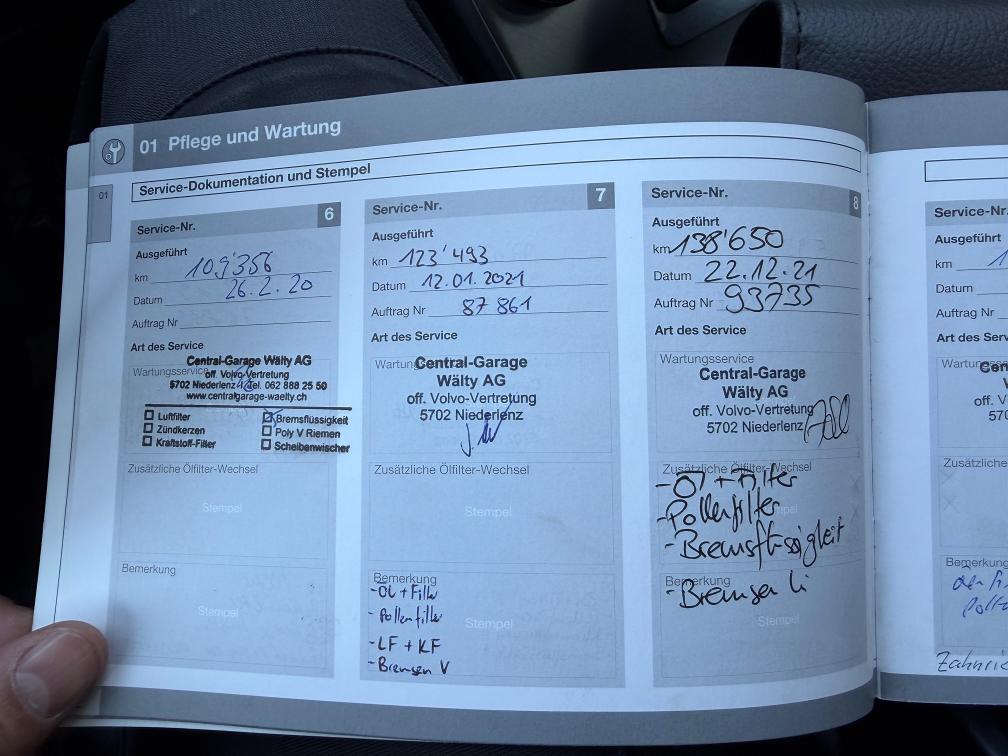 01 Pflege und Wartung
01
Service-Dokumentation und Stempel
Service-Nr. 6
Ausgeführt
km 109'356
Datum 26.2.20
Auftrag Nr
Art des Service
Wartungsservice
Central-Garage Wälty AG
off. Volvo-Vertretung
5702 Niederlenz Tel. 062 888 25 50
www.centralgarage-waelty.ch
Luftfilter
Zündkerzen
Kraftstoff-Filter
Bremsflüssigkeit
Poly V Riemen
Scheibenwischer
Zusätzliche Ölfilter-Wechsel
Stempel
Bemerkung
Stempel
Service-Nr. 7
Ausgeführt
km 123'493
Datum 12.01.2021
Auftrag Nr 87 861
Art des Service
Central-Garage
Wälty AG
off. Volvo-Vertretung
5702 Niederlenz
Zusätzliche Ölfilter-Wechsel
Stempel
Bemerkung
-Öl + Filter
-Pollenfilter
Stempel
-LF + KF
-Bremsen V
Service-Nr. 8
Ausgeführt
km 138'650
Datum 22.12.21
Auftrag Nr 93735
Art des Service
Wartungsservice
Central-Garage
Wälty AG
off. Volvo-Vertretung
5702 Niederlenz
Zusätzliche Ölfilter-Wechsel
-Öl + Filter
-Pollenfilter
-Bremsflüssigkeit
Bemerkung
-Bremsen hi
Stempel
Service-Nr.
Ausgeführt
km
Datum
Auftrag Nr
Art des Service
Zusätzliche
Bemerkung